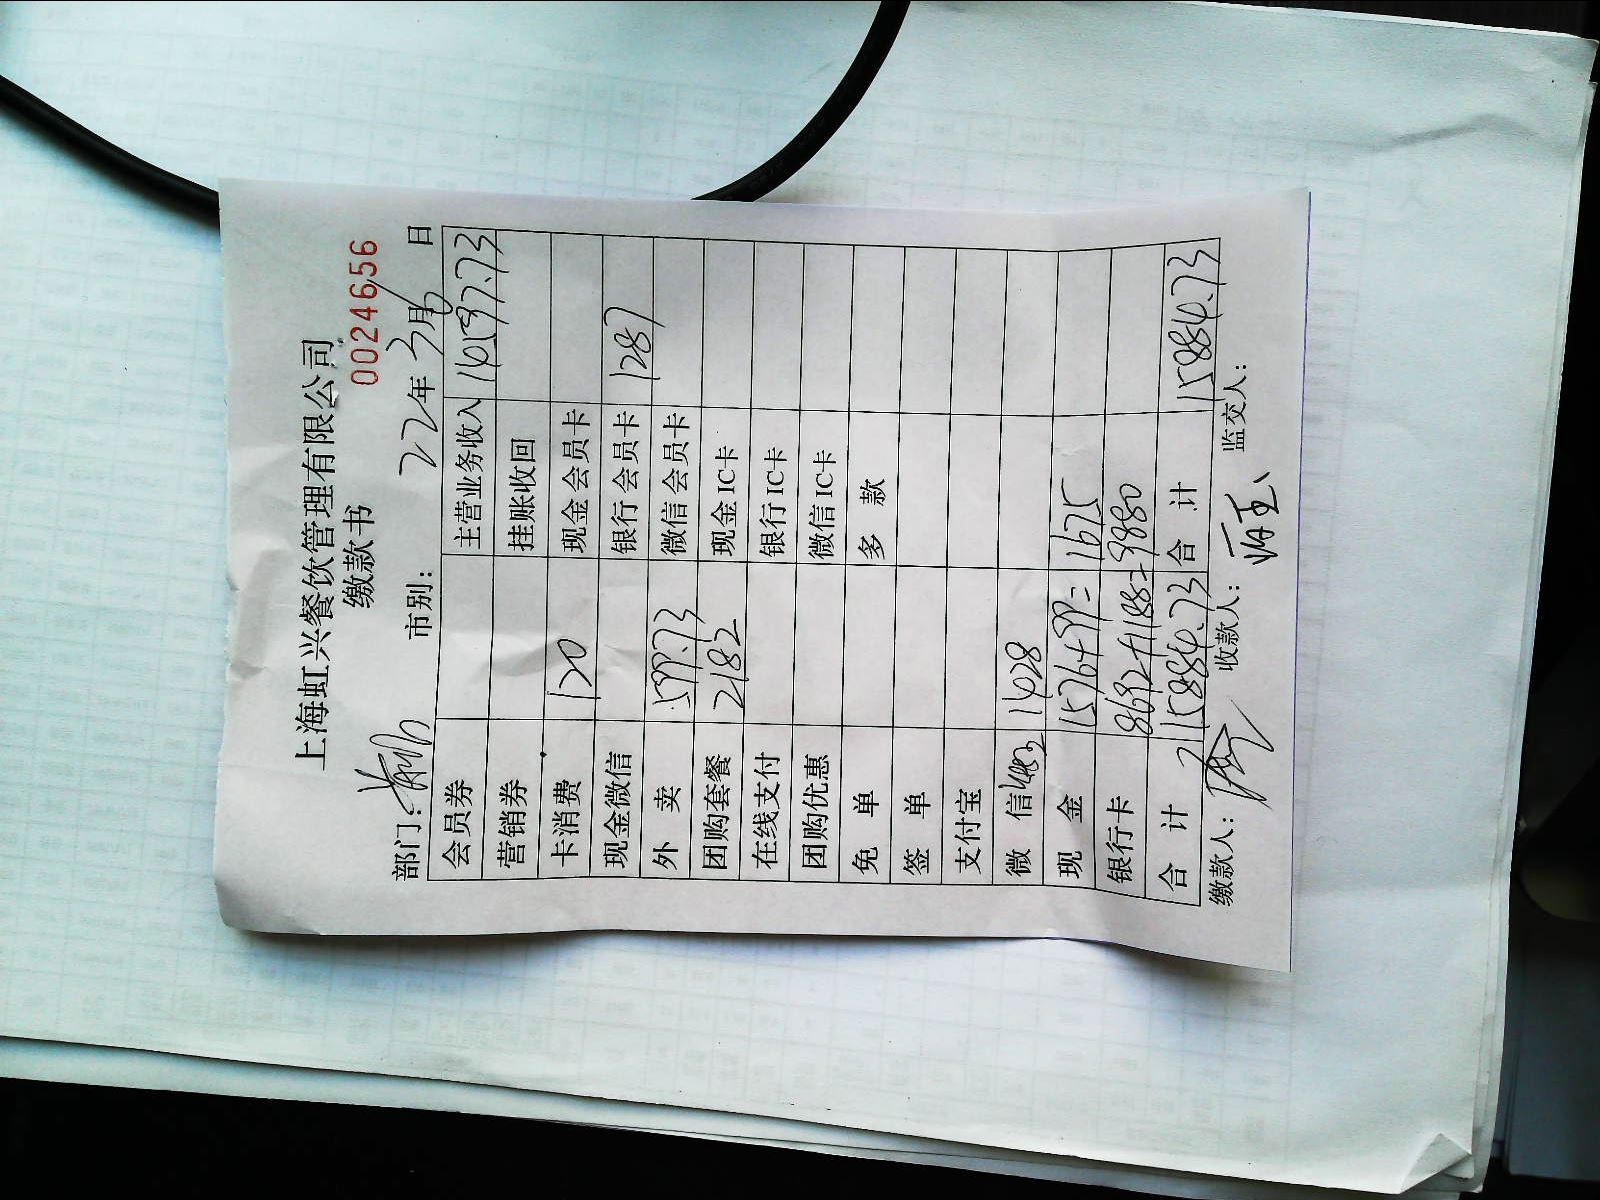 上海虹兴餐饮管理有限公司
缴款书 0024656
部门: 市别: 22年 3月 日
会员券 主营业务收入 14597.73
营销券 挂账收回
卡消费 120 现金会员卡
现金微信 银行会员卡 1287
外 卖 599.73 微信会员卡
团购套餐 2182 现金IC卡
在线支付 银行IC卡
团购优惠 微信IC卡
免 单 多 款
签 单
支付宝
微 信 1428
现 金 1576+99= 1675
银行卡 8692+1188=9880
合 计 15884.73 合 计 15884.73
缴款人: 收款人: 监交人: